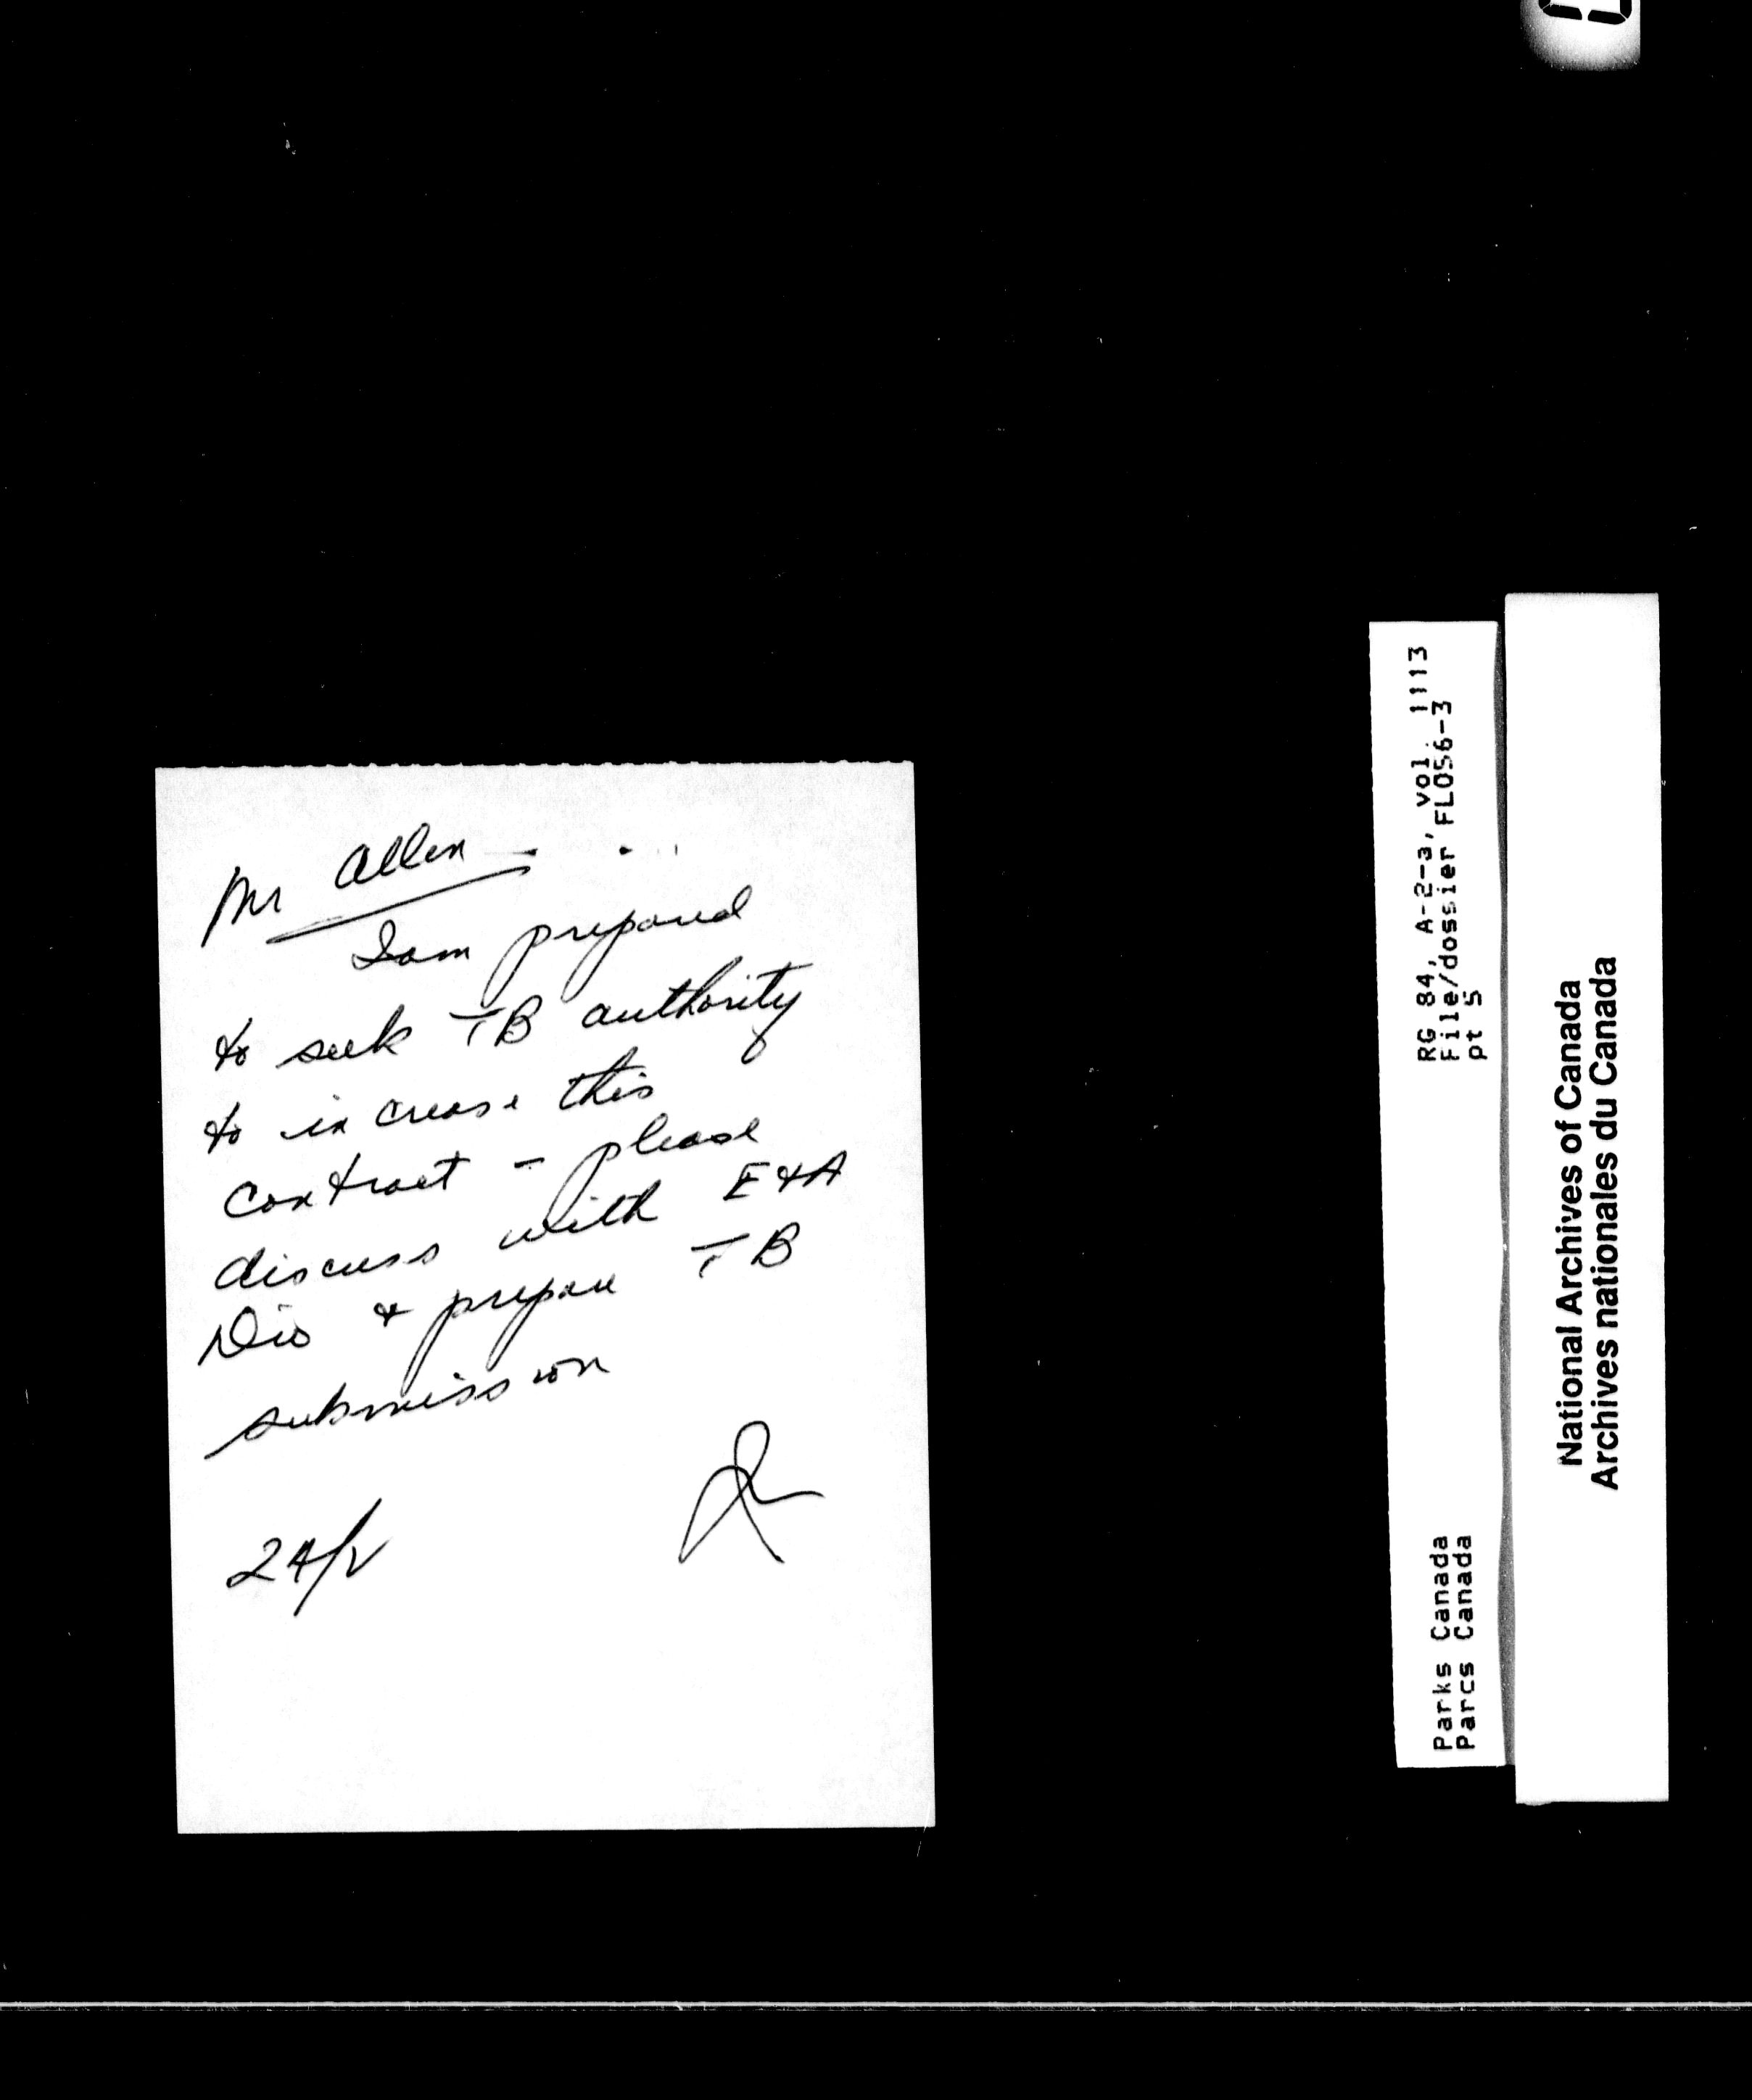 Mr Allen
I am prepared
to seek TB authority
to increase this
contract - please
discuss with E & A
Div & prepare TB
submission
24/V
RG 84, A-2-a, vol. 1113
File/dossier FL056-3
pt 5
Parks Canada
Parcs Canada
National Archives of Canada
Archives nationales du Canada